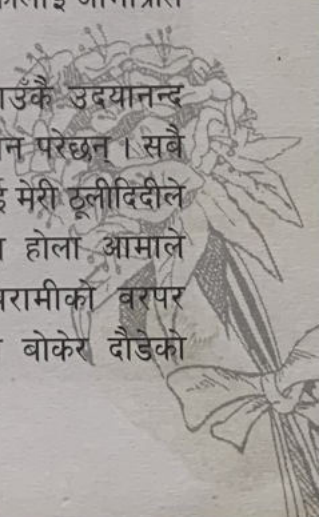 उँकै उदयानन्द
न परेछन् । सबै
मेरी ठूलीदिदीले
होला आमाले
रामीको वरपर
बोकेर दौडेको